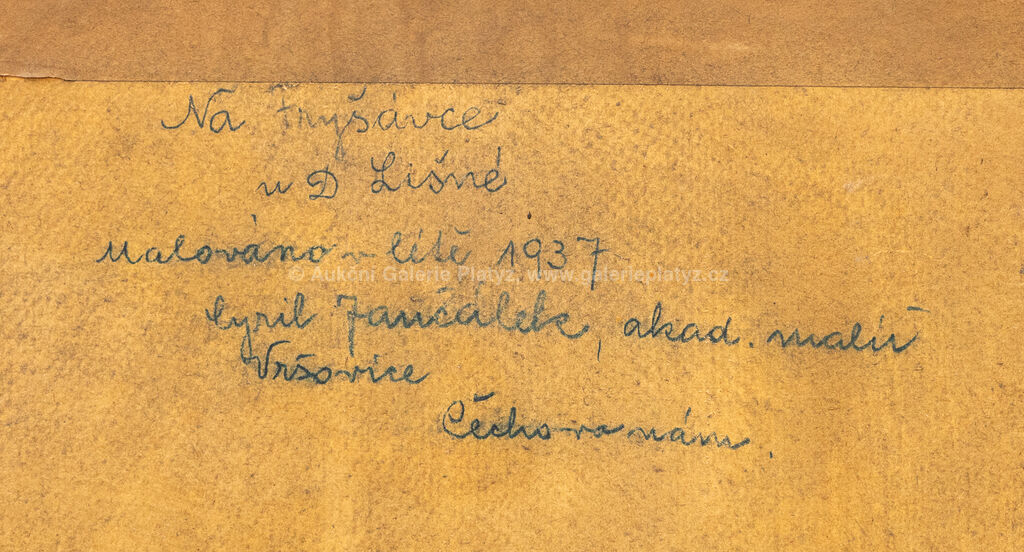 Na Fryšávce
u D Lišné
Malováno v létě 1937
© Aukční Galerie Platýz, www.galerieplatyz.cz
Cyril Jančálek, akad. malíř
Vršovice
Čechovo nám.